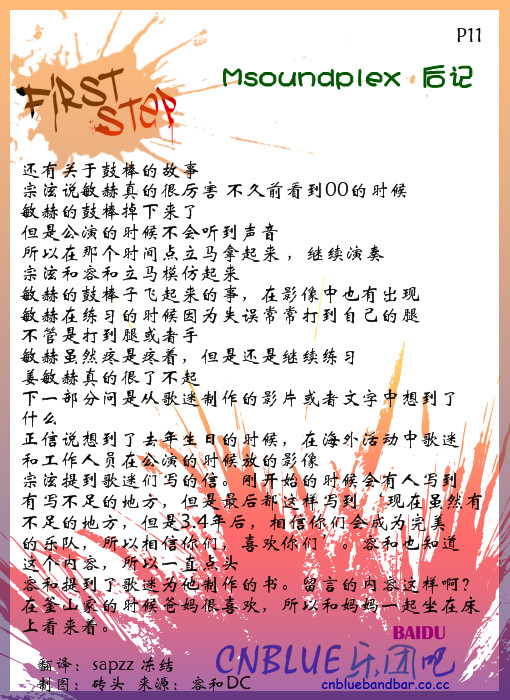 P11
Msoundplex 后记
FiRST
STEP
还有关于鼓棒的故事
宗泫说敏赫真的很厉害 不久前看到OO的时候
敏赫的鼓棒掉下来了
但是公演的时候不会听到声音
所以在那个时间点立马拿起来，继续演奏
宗泫和容和立马模仿起来
敏赫的鼓棒子飞起来的事，在影像中也有出现
敏赫在练习的时候因为失误常常打到自己的腿
不管是打到腿或者手
敏赫虽然疼是疼着，但是还是继续练习
姜敏赫真的很了不起
下一部分问是从歌迷制作的影片或者文字中想到了
什么
正信说想到了去年生日的时候，在海外活动中歌迷
和工作人员在公演的时候放的影像
宗泫提到歌迷们写的信。刚开始的时候会有人写到
有写不足的地方，但是最后都这样写到‘现在虽然有
不足的地方，但是3.4年后，相信你们会成为完美
的乐队，所以相信你们，喜欢你们’。容和也知道
这个内容，所以一直点头
容和提到了歌迷为他制作的书。留言的内容这样啊？
在釜山家的时候爸妈很喜欢，所以和妈妈一起坐在床
上看来着。
BAIDU
CNBLUE乐团吧
cnbluebandbar.co.cc
翻译：sapzz 冻结
制图：砖头 来源：容和DC